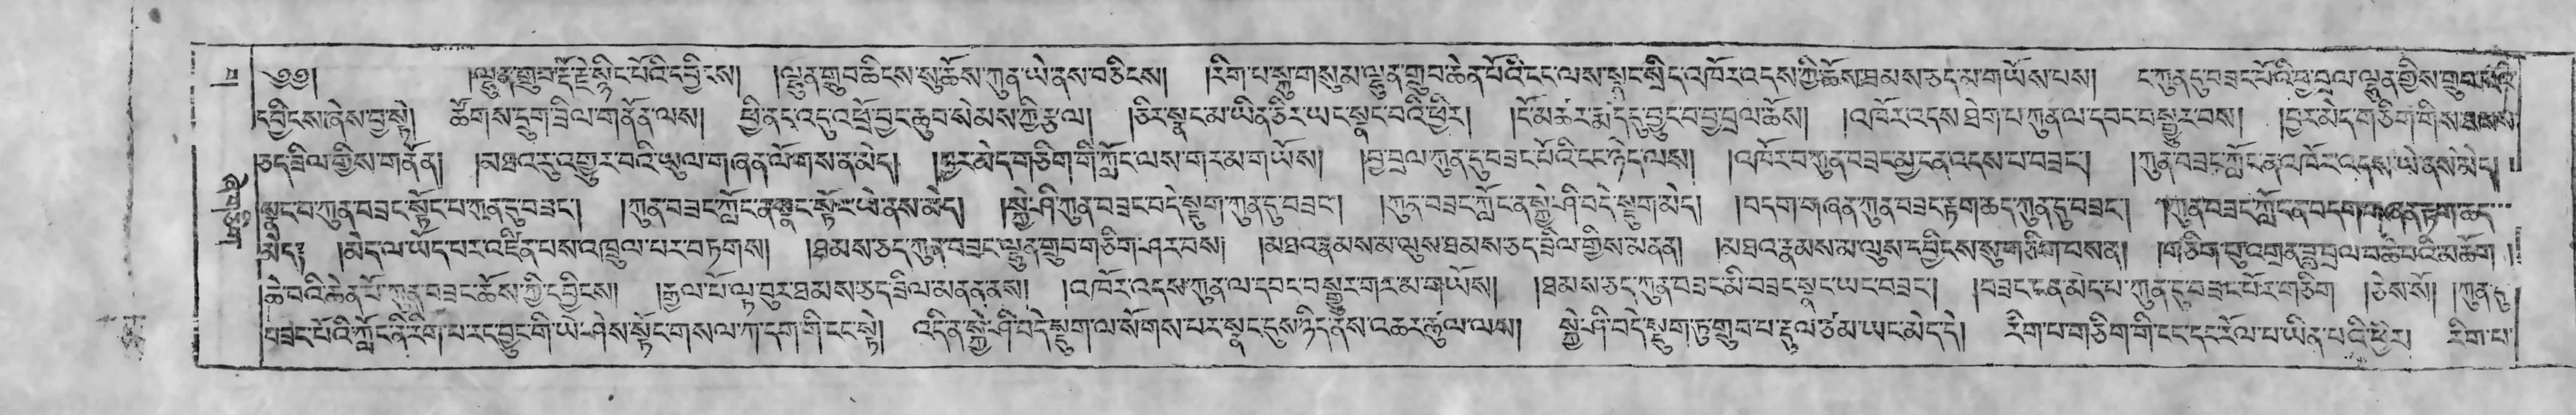 ༄༅། །ལྷུན་གྲུབ་རྡོ་རྗེ་སྙིང་པོའི་དབྱིངས། །ལྷུན་གྲུབ་ཆིངས་སུ་ཆོས་ཀུན་ཡེ་ནས་བཅིངས། །རིག་པ་སྐུ་གསུམ་ལྷུན་གྲུབ་ཆེན་པོའི་ངང་ལས་སྣང་སྲིད་འཁོར་འདས་ཀྱི་ཆོས་ཐམས་ཅད་མ་གཡོས་པས། ང་ཀུན་ཏུ་བཟང་པོའི་བྱ་བྲལ་ལྷུན་གྱིས་གྲུབ་པའི་
དབྱིངས་ཞེས་བྱ་སྟེ། ཚོགས་དྲུག་ཟིལ་གནོན་ལས། ཕྱིན་ད་འདུ་འཕྲོ་བྱང་ཆུབ་སེམས་ཀྱི་རྩལ། །ཅིར་སྣང་མ་ཡིན་ཅིར་ཡང་སྣང་བའི་ཕྱིར། །ངོ་མཚར་རྨད་དུ་བྱུང་བ་བྱ་བྲལ་ཆོས། །འཁོར་འདས་ཐེག་པ་ཀུན་ལ་དབང་བསྒྱུར་བས། །བྱར་མེད་གཅིག་གིས་ཐམས་
ཅད་ཟིལ་གྱིས་གནོན། །མཐའ་རུ་འགྱུར་བའི་ཡུལ་གཞན་ལོགས་ན་མེད། །བྱར་མེད་གཅིག་གི་ཀློང་ལས་གར་མ་གཡོས། །བྱ་བྲལ་ཀུན་ཏུ་བཟང་པོའི་ངང་ཉིད་ལས། །འཁོར་བ་ཀུན་བཟང་མྱ་ངན་འདས་པ་བཟང་། །ཀུན་བཟང་ཀློང་ན་འཁོར་འདས་ཡེ་ནས་མེད།
སྣང་བ་ཀུན་བཟང་སྟོང་པ་ཀུན་ཏུ་བཟང་། །ཀུན་བཟང་ཀློང་ན་སྣང་སྟོང་ཡེ་ནས་མེད། །སྐྱེ་ཤི་ཀུན་བཟང་བདེ་སྡུག་ཀུན་ཏུ་བཟང་། །ཀུན་བཟང་ཀློང་ན་སྐྱེ་ཤི་བདེ་སྡུག་མེད། །བདག་གཞན་ཀུན་བཟང་རྟག་ཆད་ཀུན་ཏུ་བཟང་། །ཀུན་བཟང་ཀློང་ན་བདག་གཞན་རྟག་ཆད་
མེད། །མེད་ལ་ཡོད་པར་འཛིན་པས་འཁྲུལ་པར་བཏགས། །ཐམས་ཅད་ཀུན་བཟང་ལྷུན་གྲུབ་གཅིག་ཤར་བས། །མཐའ་རྣམས་མ་ལུས་ཐམས་ཅད་ཟིལ་གྱིས་མནན། །མཐའ་རྣམས་མ་ལུས་དབྱིངས་སུ་གཅིག་བསན། །གཅིག་པུ་འགྲན་ཟླ་བྲལ་བ་ཆེ་བའི་མཆོག
ཆེ་བའི་ཆེན་པོ་ཀུན་བཟང་ཆོས་ཀྱི་དབྱིངས། །རྒྱལ་པོ་ལྟ་བུར་ཐམས་ཅད་ཟིལ་མནན་ནས། །འཁོར་འདས་ཀུན་ལ་དབང་བསྒྱུར་གར་མ་གཡོས། །ཐམས་ཅད་ཀུན་བཟང་མི་བཟང་སྣང་ཡང་བཟང་། །བཟང་ངན་མེད་པ་ཀུན་ཏུ་བཟང་པོར་གཅིག །ཅེས་སོ། །ཀུན་ཏུ་
བཟང་པོའི་ཀློང་ནི་རིག་པ་རང་བྱུང་གི་ཡེ་ཤེས་སྟོང་གསལ་ཀ་དག་གི་ངང་སྟེ། འདི་ན་སྐྱེ་ཤི་བདེ་སྡུག་ལ་སོགས་པར་སྣང་དུས་ཉིད་ནས་འཆར་ཚུལ་ལས། སྐྱེ་ཤི་བདེ་སྡུག་ཏུ་གྲུབ་པ་རྡུལ་ཙམ་ཡང་མེད་དེ། རིག་པ་གཅིག་གི་ངང་དང་རོལ་པ་ཡིན་པའི་ཕྱིར། རིག་པ་